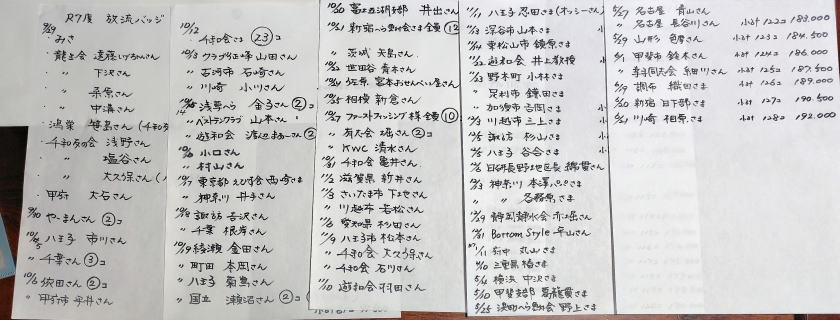 R7度 放流バッジ
9/29
・みさ
・龍上会 遠藤
〃 下沢
〃 桑原
〃 中溝
・鴻巣
・千和友の会 浅野
〃 塩谷
〃 大久保さん
・甲府 大石さん
9/30 やーまんさん ②コ
八王子 市川さん
〃 千葉さん ③コ
10/6 依田さん ②コ
〃 甲府市 平井さん
10/12
・千和会さま ㉓コ
10/13 クラブ 山田さん
〃 石河市 石崎さん
〃 川崎 小川さん
浅草へら 金子さん ②コ
〃 ベストテンクラブ 山本さん
〃 遊和会 さん ②
10/16 小口さん
〃 村山さん
10/17 東京都 えびす会 西崎さま
〃 神奈川 井手さん
10/18 諏訪 吉沢さん
〃 千葉 根岸さん
10/19 綾瀬 金田さん
〃 町田 本岡さん
〃 八王子 菊島さん
〃 国立 瀬沼さん ②コ
10/20 富士五湖支部 井出さん
10/21 新宿へら鮒会さま 全員 ⑫
〃 茨城 矢島さん
10/22 世田谷 青木さん
10/24 佐原 宮本おせんべい屋さん
相模 新倉さん
10/27 ファーストフィッシング様 全員 ⑩
〃 有大会 堀さん ②コ
〃 KWC 清水さん
千和会 亀井さん
11/2 滋賀県 新井さん
11/3 さいたま市 下地さん
〃 川越市 若松さん
11/6 愛知県 杉田さん
11/9 八王子市 松本さん
〃 千和会 大久保さん
〃 千和会 石川さん
11/10 遊和会 羽田さん
11/11 八王子 忍田さま(オッシーさん)
深谷市 山本さま
東松山市 鎮原さま
遊和会 井上教授
野木町 小林さま
〃 足利市 鎌田さま
〃 加須市 吉岡さま
川越市 三上さま
諏訪 杉山さま
八王子 谷合さま
日研長野地区長 さん
神奈川 本澤バンビさま
〃 各務原さま
静岡鮒水会 赤堀さん
Bottom Style 平山さん
1/11 府中 丸山さま
三重県 椿さま
横浜 中沢さま
甲斐支部 さま
浜町へら鮒会 野上さま
名古屋 青山さん
〃 名古屋 長谷川さん 小計 122コ 183.000
山形 さん 小計 123コ 184.500
甲斐市 鈴木さん 小計 124コ 186.000
〃 同大会 細川さん 小計 125コ 187.500
調布 織田さま 小計 126コ 189.000
新宿 日下部さま 小計 127コ 190.500
川崎 相原さま 小計 128コ 192.000